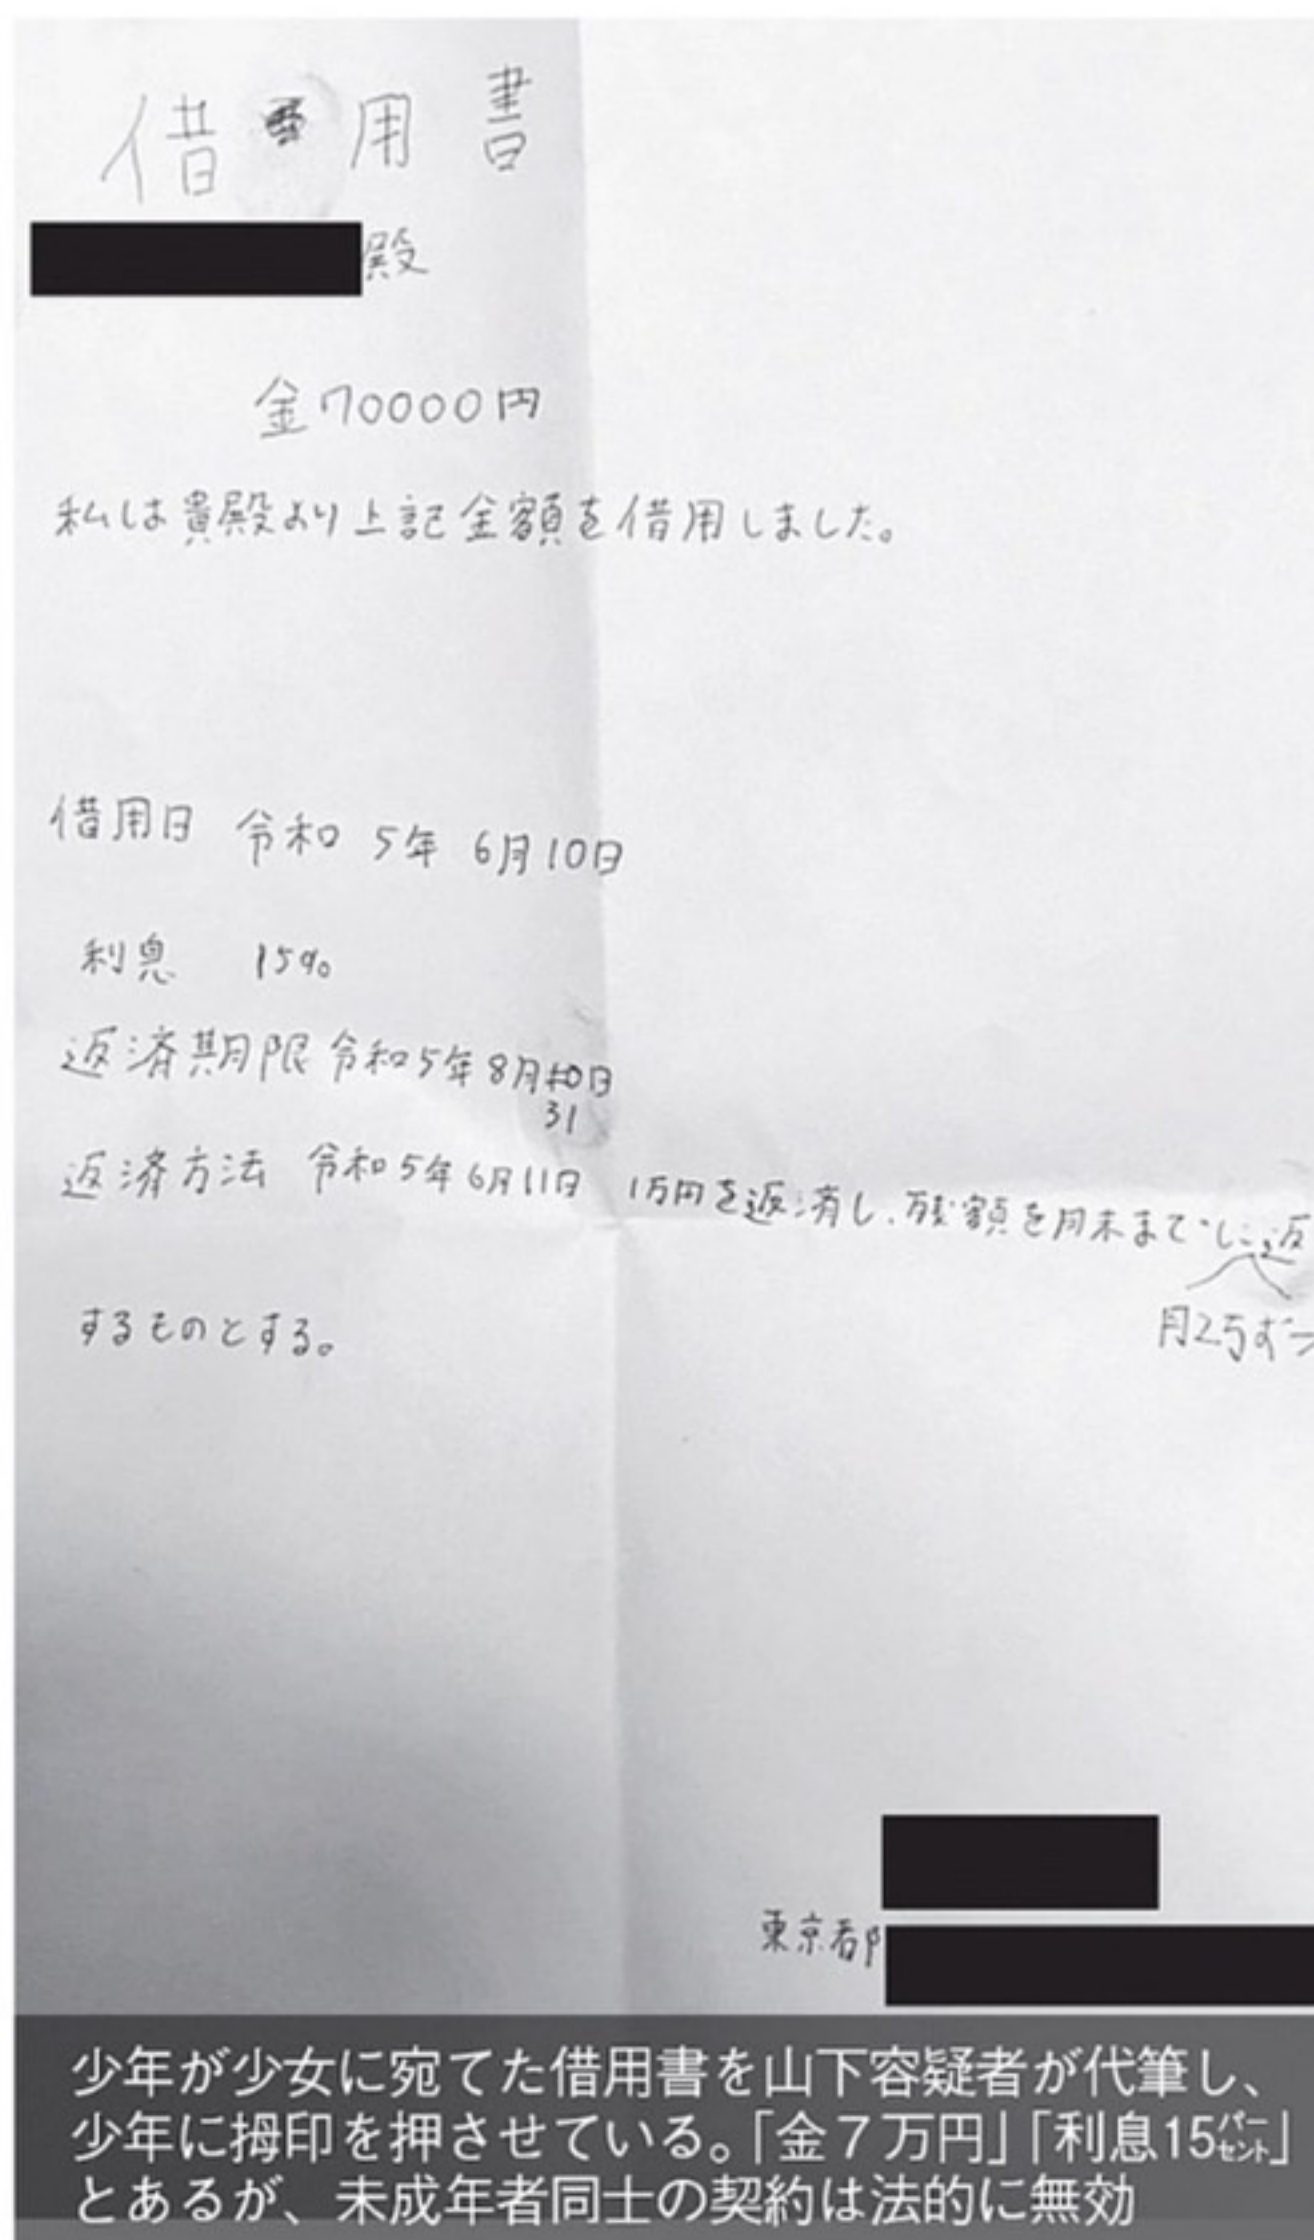 借用書
殿
金70000円
私は貴殿より上記金額を借用しました。
借用日 令和 5年 6月10日
利息 15%
返済期限 令和5年8月10日
31
返済方法 令和5年6月11日 1万円を返済し、残額を月末までに返
月2万ずつ
するものとする。
東京都
少年が少女に宛てた借用書を山下容疑者が代筆し、
少年に拇印を押させている。「金７万円」「利息15パーセント」
とあるが、未成年者同士の契約は法的に無効